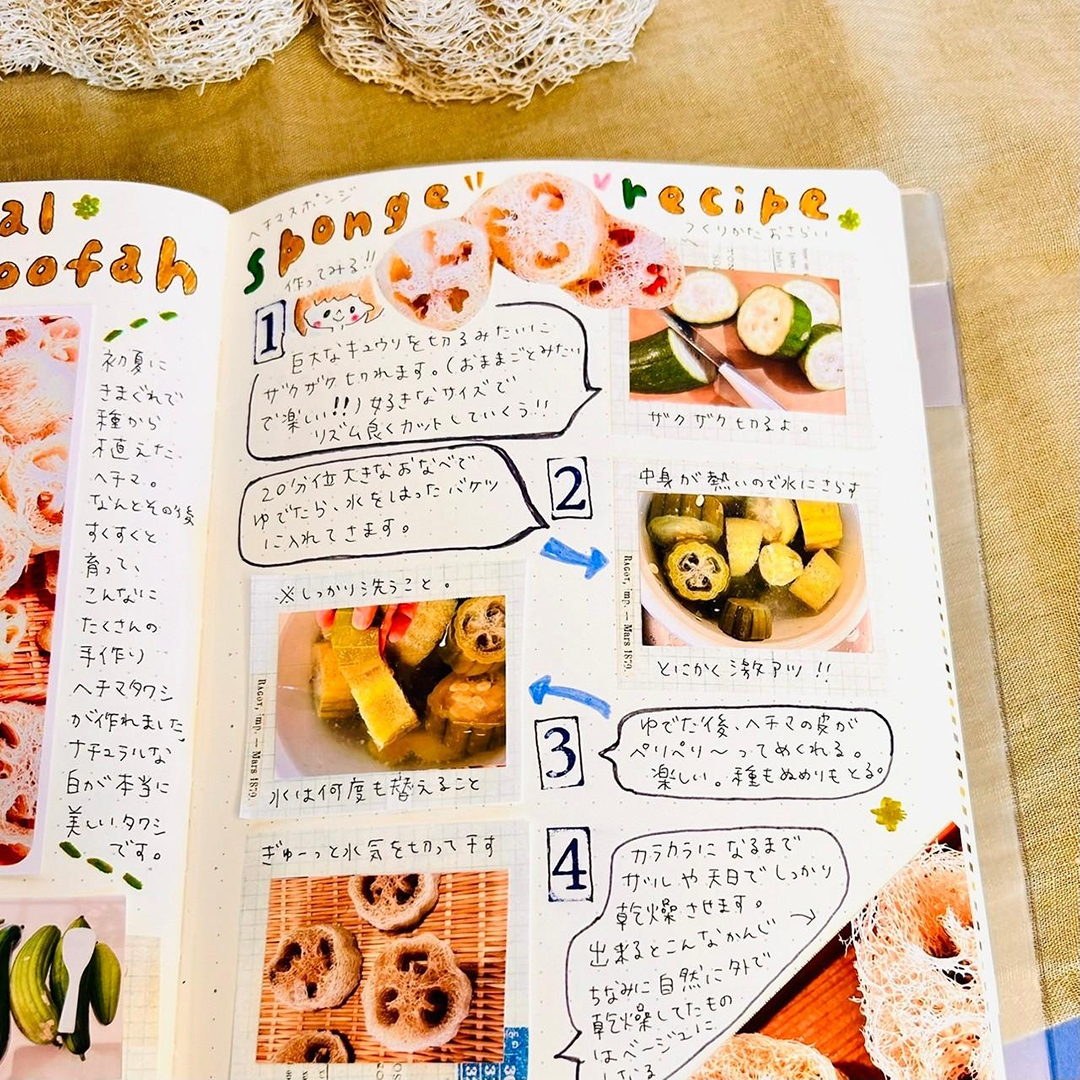 al
oofah
初夏に
きまぐれで
種から
植えた
ヘチマ。
なんとその後
すくすくと
育って、
こんなに
たくさんの
手作り
ヘチマタワシ
が作れました。
ナチュラルな
白が本当に
美しいタワシ
です。
ヘチマスポンジ
sponge recipe
つくりかたおさらい
作ってみる!!
1
巨大なキュウリを切るみたいに
ザクザク切れます。(おままごとみたい
で楽しい!!)好きなサイズで
リズム良くカットしていくぅ!!
ザクザク切るよ。
20分位大きなおなべで
ゆでたら、水をはったバケツ
に入れてきます。
2
中身が熱いので水にさらす
RAGOT, imp. — Mars 1879.
とにかく激アツ!!
※しっかり洗うこと。
RAGOT, imp. — Mars 1879.
水は何度も替えること
3
ゆでた後、ヘチマの皮が
ペリペリ〜ってめくれる。
楽しい。種もぬめりもとる。
ぎゅーっと水気を切って干す
4
カラカラになるまで
ザルや天日でしっかり
乾燥させます。
出来るとこんなかんじ
ちなみに自然に外で
乾燥してたもの
はベージュに
しなる